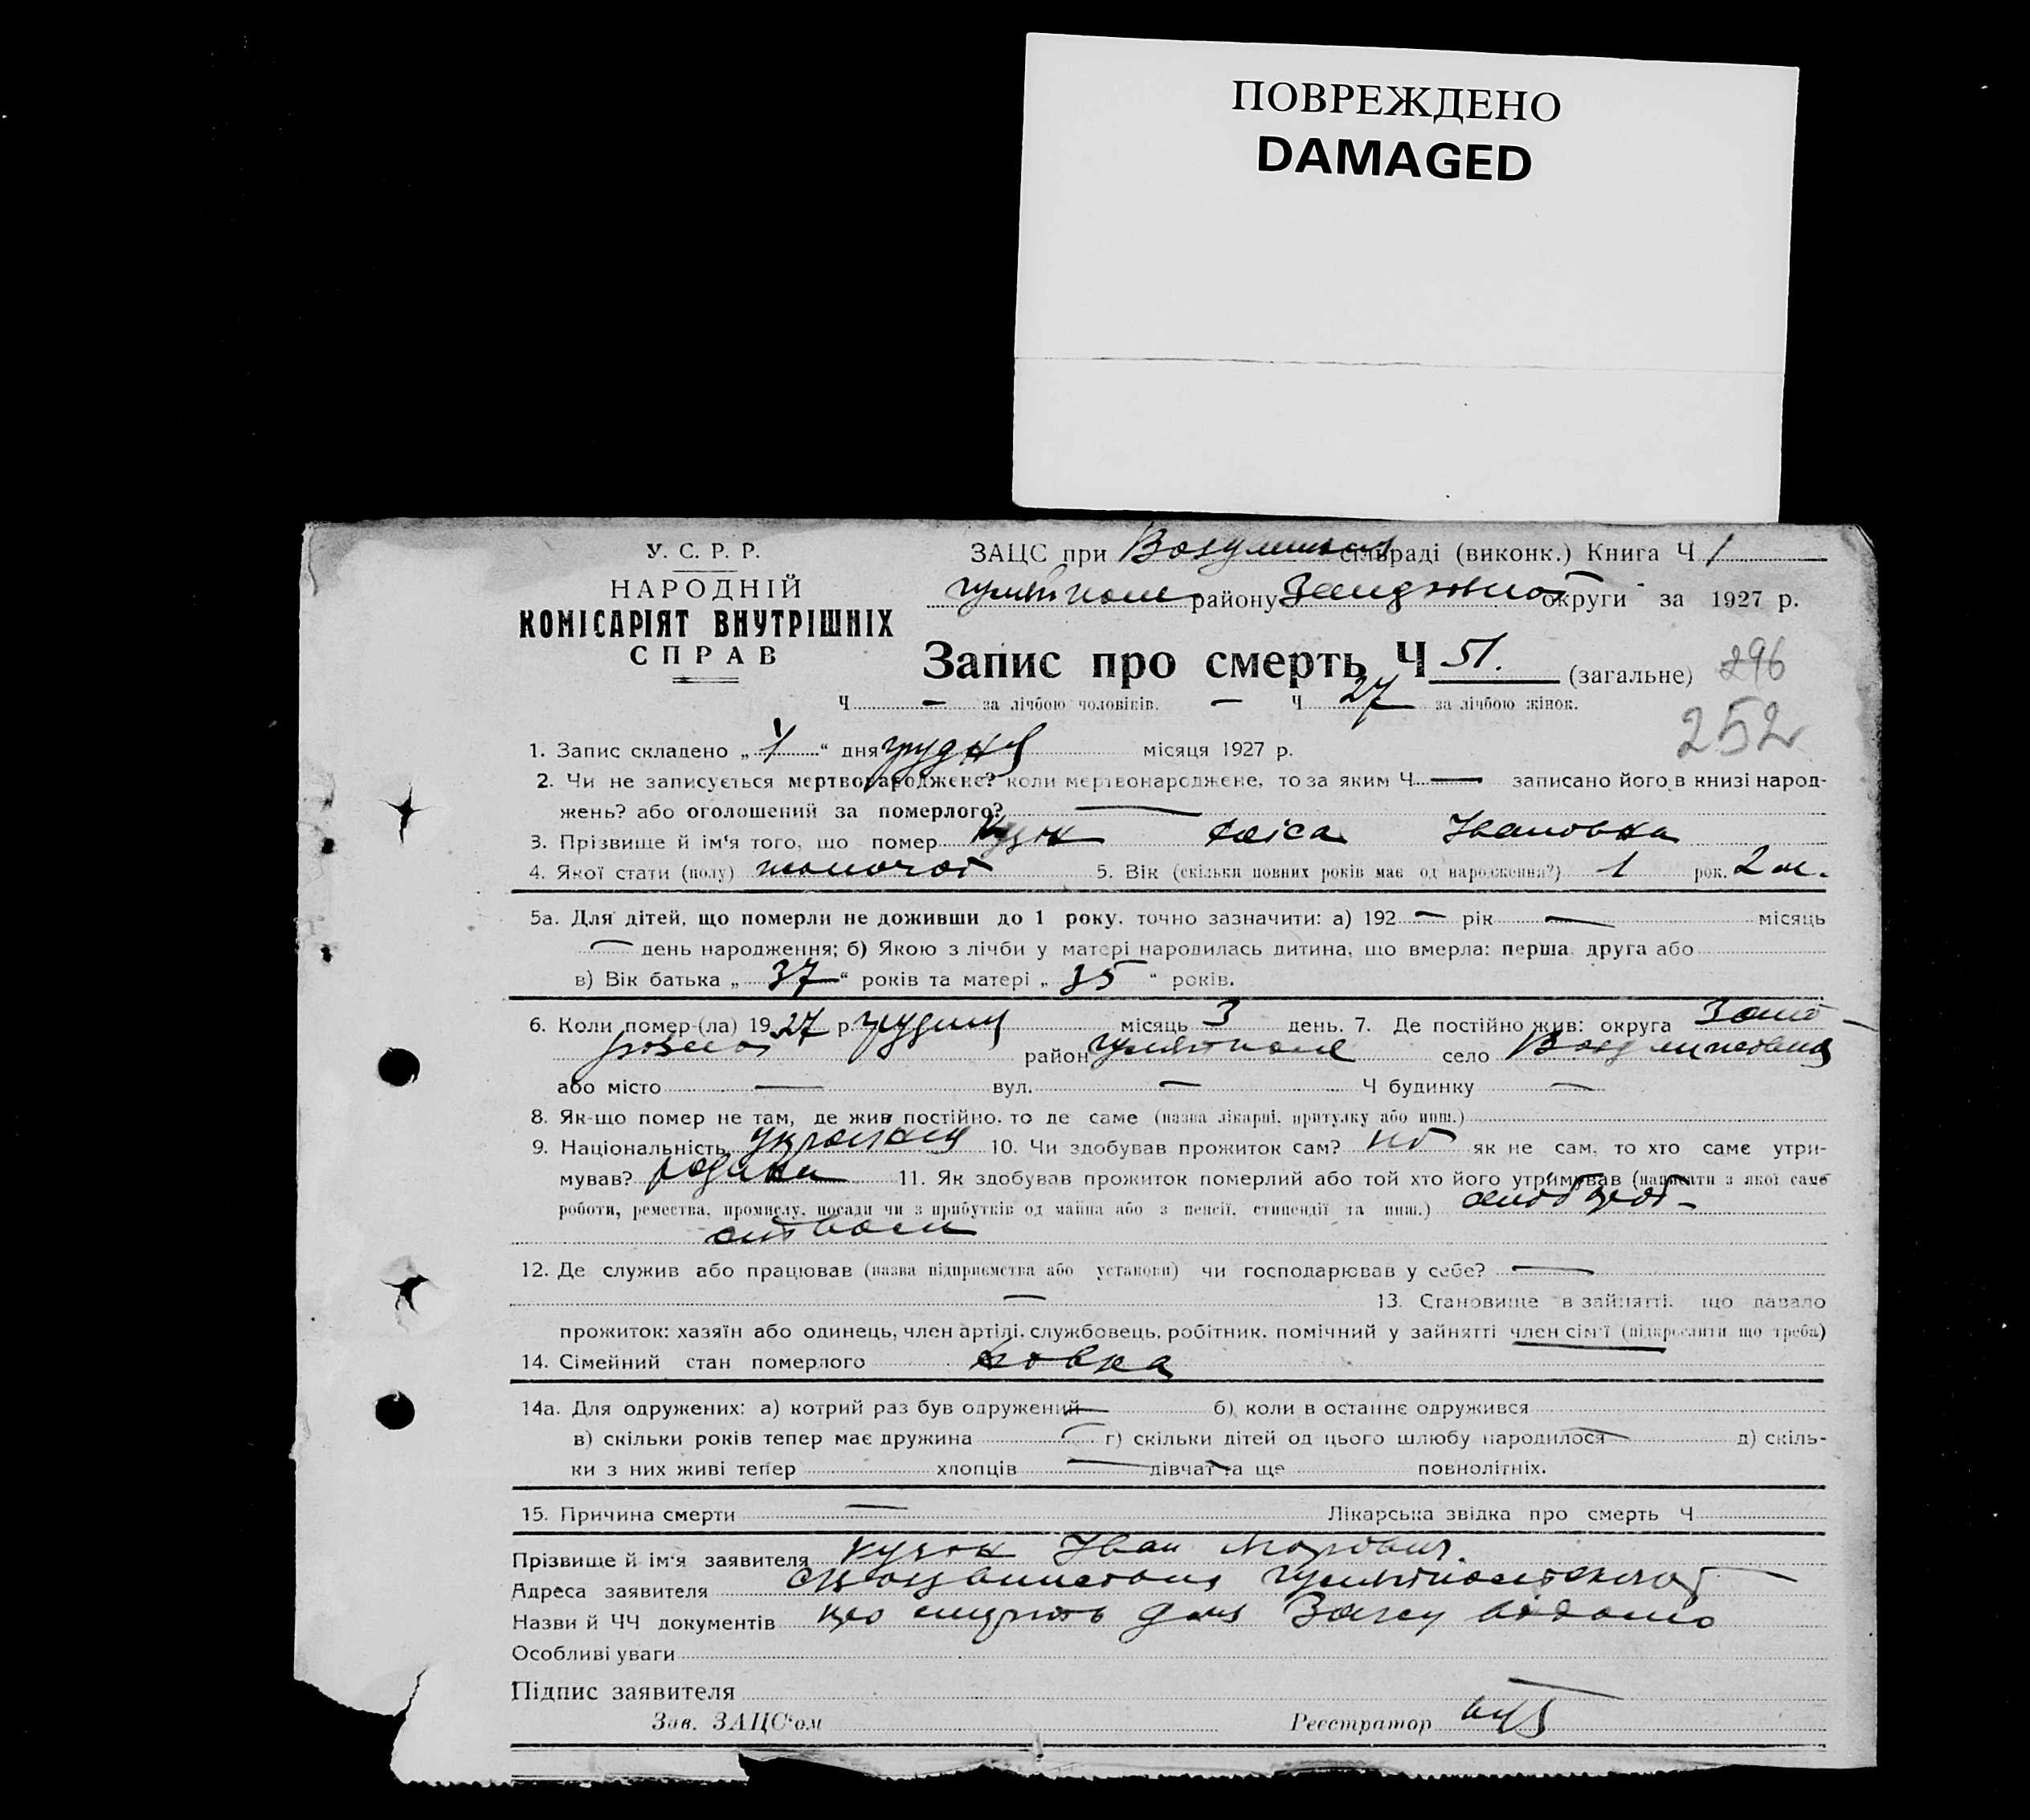 ПОВРЕЖДЕНО
DAMAGED
У. С. Р. Р.
НАРОДНІЙ
КОМІСАРІЯТ ВНУТРІШНІХ
СПРАВ
ЗАЦС при сільраді (виконк.) Книга Ч 1
району округи за 1927 р.
Запис про смерть Ч 51. (загальне) 296
252
Ч — за лічбою чоловіків. — Ч 27 за лічбою жінок.
1. Запис складено „ “ дня грудня місяця 1927 р.
2. Чи не записується мертвонароджене? коли мертвонароджене, то за яким Ч — записано його в книзі народ-
жень? або оголошений за померлого? —
3. Прізвище й ім‘я того, що помер Івановна
4. Якої стати (полу) жіночої 5. Вік (скільки повних років має од народження?) 1 рок. 2 м.
5а. Для дітей, що померли не доживши до 1 року, точно зазначити: а) 192 — рік — місяць
— день народження; б) Якою з лічби у матері народилась дитина, що вмерла: перша, друга або
в) Вік батька „ 37 “ років та матері „ 35 “ років.
6. Коли помер-(ла) 1927 р. грудня місяць 3 день. 7. Де постійно жив: округа
район село
або місто — вул. — Ч будинку —
8. Як-що помер не там, де жив постійно, то де саме (назва лікарні, притулку або инш.)
9. Національність 10. Чи здобував прожиток сам? ні як не сам, то хто саме утри-
мував? родина 11. Як здобував прожиток померлий або той хто його утримував (написати з якої саме
роботи, ремества, промислу, посади чи з прибутків од майна або з пенсії, стипендії та инш.)
12. Де служив або працював (назва підприємства або установи) чи господарював у себе? —
— 13. Становище в зайнятті, що давало
прожиток: хазяїн або одинець, член артілі, службовець, робітник, помічний у зайнятті член сім‘ї (підкреслити що треба)
14. Сімейний стан померлого
14а. Для одружених: а) котрий раз був одружений — б) коли в останнє одружився
в) скільки років тепер має дружина — г) скільки дітей од цього шлюбу народилося — д) скіль-
ки з них живі тепер хлопців — дівчат та ще повнолітніх.
15. Причина смерти — Лікарська звідка про смерть Ч
Прізвище й ім‘я заявителя Іван
Адреса заявителя
Назви й ЧЧ документів про смерть для Загсу відомо
Особливі уваги
Підпис заявителя
Зав. ЗАЦС‘ом Реєстратор